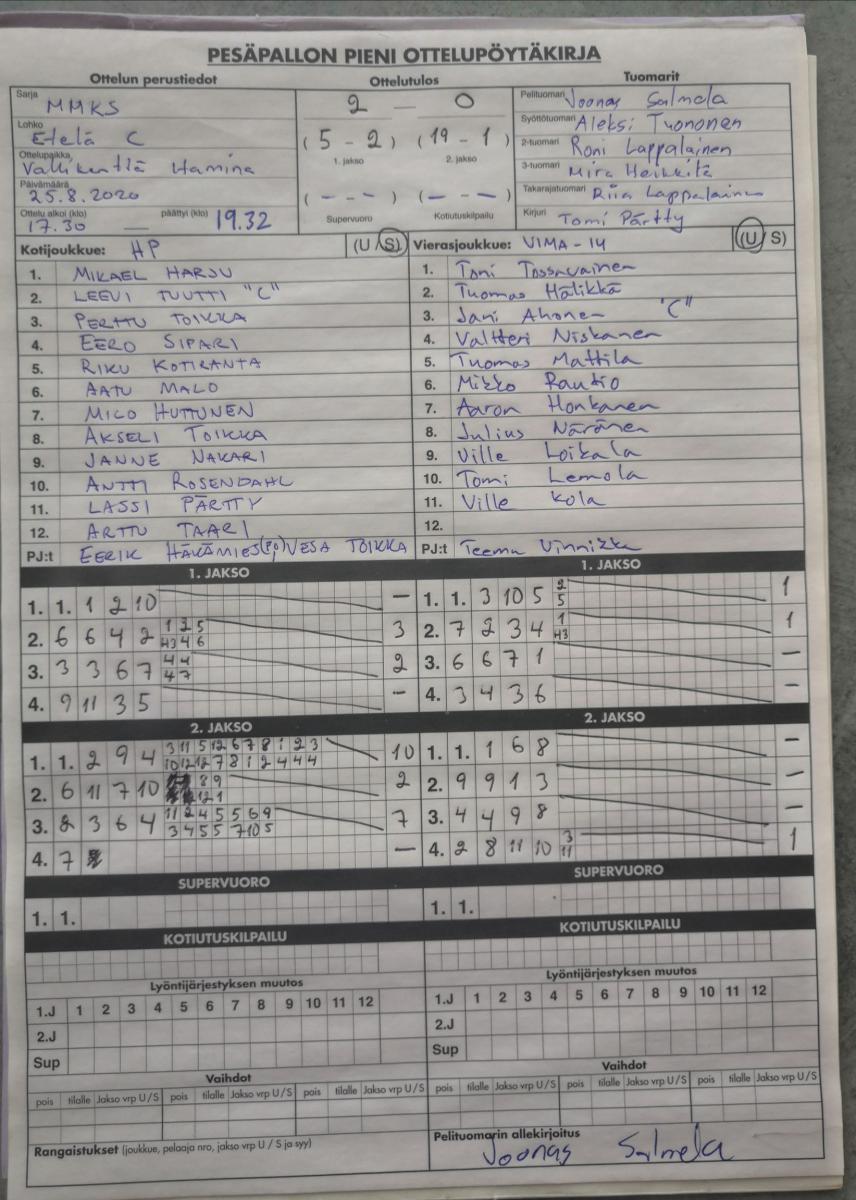 PESÄPALLON PIENI OTTELUPÖYTÄKIRJA
Ottelun perustiedot
Sarja MMKS
Lohko Etelä C
Ottelupaikka Vallikenttä Hamina
Päivämäärä 25.8.2020
Ottelu alkoi (klo) 17.30 — päättyi (klo) 19.32
Ottelutulos
2 — 0
(5 - 2) (19 - 1)
1. jakso 2. jakso
(- - -) (- - -)
Supervuoro Kotiutuskilpailu
Tuomarit
Pelituomari Joonas Salmela
Syöttötuomari Aleksi Tuononen
2-tuomari Roni Lappalainen
3-tuomari Mira Heikkilä
Takarajatuomari Riia Lappalainen
Kirjuri Tomi Pärtty
Kotijoukkue: HP (U/S)
1. MIKAEL HARJU
2. LEEVI TUUTTI "C"
3. PERTTU TOIKKA
4. EERO SIPARI
5. RIKU KOTIRANTA
6. AATU MALO
7. MICO HUTTUNEN
8. AKSELI TOIKKA
9. JANNE NAKARI
10. ANTTI ROSENDAHL
11. LASSI PÄRTTY
12. ARTTU TAARI
PJ:t EERIK HÄKÄMIES(pj) VESA TOIKKA
Vierasjoukkue: VIMA-14 (U/S)
1. Toni Tossavainen
2. Tuomas Hälikkä
3. Jani Ahonen "C"
4. Valtteri Niskanen
5. Tuomas Mattila
6. Mikko Rautio
7. Aaron Honkanen
8. Julius Näränen
9. Ville Loikala
10. Tomi Lemola
11. Ville Kola
12.
PJ:t Teemu
1. JAKSO
1. 1. 1 2 10 —
2. 6 6 4 2 1 2 5 3
H3 4 6
3. 3 3 6 7 4 4 2
4 7
4. 9 11 3 5 —
2. JAKSO
1. 1. 2 9 4 3 11 5 12 6 7 8 1 2 3 10
10 12 12 7 8 1 2 4 4 4
2. 6 11 7 10 8 9 2
12 1
3. 2 3 6 4 11 2 4 5 5 6 9 7
3 4 5 5 7 10 5
4. 7 —
SUPERVUORO
1. 1.
KOTIUTUSKILPAILU
Lyöntijärjestyksen muutos
1.J 1 2 3 4 5 6 7 8 9 10 11 12
2.J
Sup
Vaihdot
pois tilalle Jakso vrp U/S pois tilalle Jakso vrp U/S pois tilalle Jakso vrp U/S
Rangaistukset (joukkue, pelaaja nro, jakso vrp U / S ja syy)
1. JAKSO
1. 1. 3 10 5 2 1
5
2. 7 2 3 4 1 1
H3
3. 6 6 7 1 —
4. 3 4 3 6 —
2. JAKSO
1. 1. 1 6 8 —
2. 9 9 1 3 —
3. 4 4 9 8 —
4. 2 8 11 10 3 1
11
SUPERVUORO
1. 1.
KOTIUTUSKILPAILU
Lyöntijärjestyksen muutos
1.J 1 2 3 4 5 6 7 8 9 10 11 12
2.J
Sup
Vaihdot
pois tilalle Jakso vrp U/S pois tilalle Jakso vrp U/S pois tilalle Jakso vrp U/S
Pelituomarin allekirjoitus
Joonas Salmela